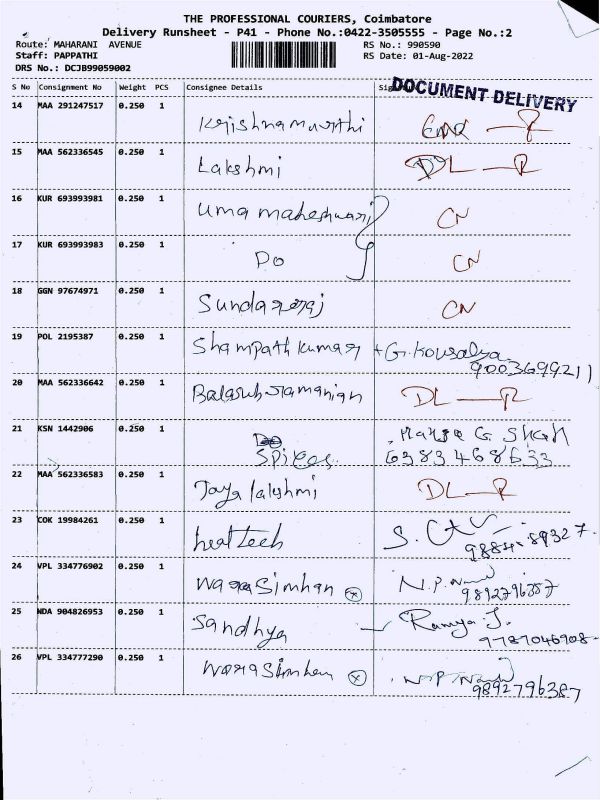 THE PROFESSIONAL COURIERS, Coimbatore
Delivery Runsheet - P41 - Phone No.:0422-3505555 - Page No.:2
Route: MAHARANI AVENUE RS No.: 990590
Staff: PAPPATHI RS Date: 01-Aug-2022
DRS No.: DCJB99059002
DOCUMENT DELIVERY
S No Consignment No Weight PCS Consignee Details
14 MAA 291247517 0.250 1
Krishnamurthi
15 MAA 562336545 0.250 1
Lakshmi DL - R
16 KUR 693993981 0.250 1
Uma maheshwari CN
17 KUR 693993983 0.250 1
Do CN
18 GGN 97674971 0.250 1
Sundararaj CN
19 POL 2195387 0.250 1
Shampath kumar + G. Kousalya
9003699211
20 MAA 562336642 0.250 1
Balasubramanian DL - R
21 KSN 1442906 0.250 1
Spices G. Shah
6383468633
22 MAA 562336583 0.250 1
Jaya lakshmi DL - R
23 COK 19984261 0.250 1
heat tech S.
89327
24 VPL 334776902 0.250 1
Narasimhan N.P.
9892796387
25 NDA 904826953 0.250 1
Sandhya Ramya J.
9787046908
26 VPL 334777290 0.250 1
Narasimhan N.P.
9892796387